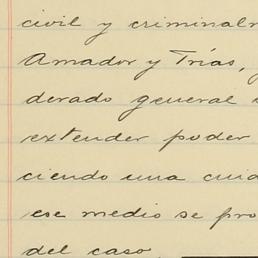 civil y criminalm
Amador y Trías,
derado general
extender poder
ciendo una cuid
ese medio se pro
del caso